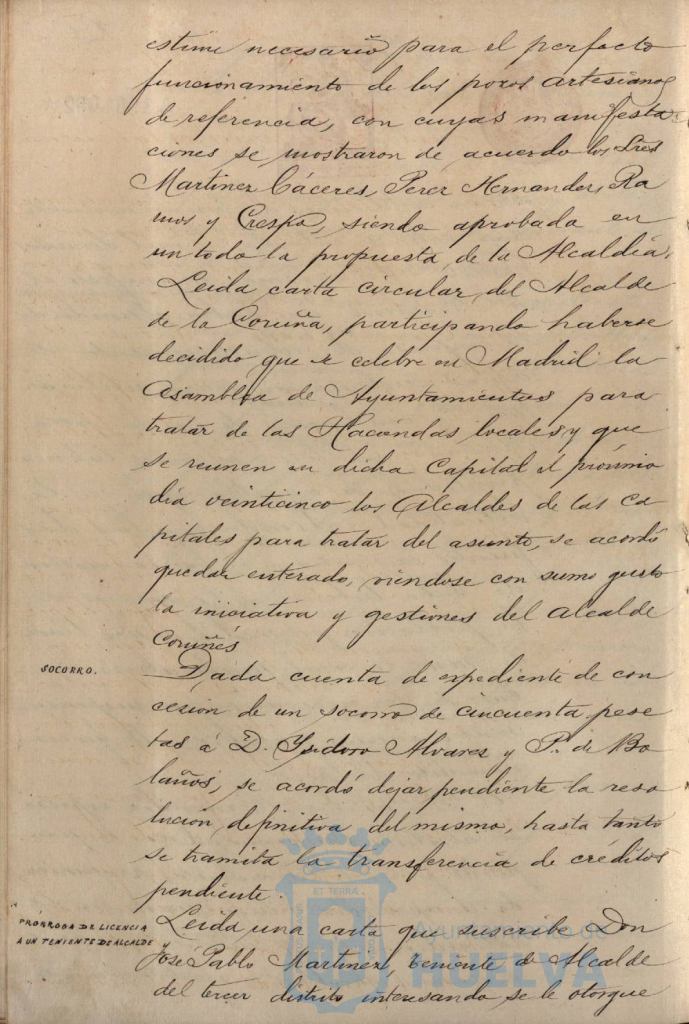 estime necesario para el perfecto
funcionamiento de los pozos artesianos
de referencia, con cuyas manifesta
ciones se mostraron de acuerdo los Sres
Martinez Cáceres, Perez Hernandez, Ra
mos y Crespo, siendo aprobada en
un todo la propuesta de la Alcaldía.
Leida carta circular del Alcalde
de la Coruña, participando haberse
decidido que se celebre en Madrid la
Asamblea de Ayuntamientos para
tratar de las Haciendas locales y que
se reunen en dicha Capital el próximo
dia veinticinco los Alcaldes de las Ca
pitales para tratar del asunto, se acordó
quedar enterado, viéndose con sumo gusto
la iniciativa y gestiones del Alcalde
Coruñés
SOCORRO.
Dada cuenta de expediente de con
cesión de un socorro de cincuenta pese
tas á D. Ysidoro Alvarez y P. de Bo
laños, se acordó dejar pendiente la reso
lución definitiva del mismo, hasta tanto
se tramita la transferencia de créditos
pendiente.
PRÓRROGA DE LICENCIA
A UN TENIENTE DE ALCALDE
Leida una carta que suscribe Don
José Pablo Martinez, teniente de Alcalde
del tercer distrito interesando se le otorgue
ET TERRA
HUELVA